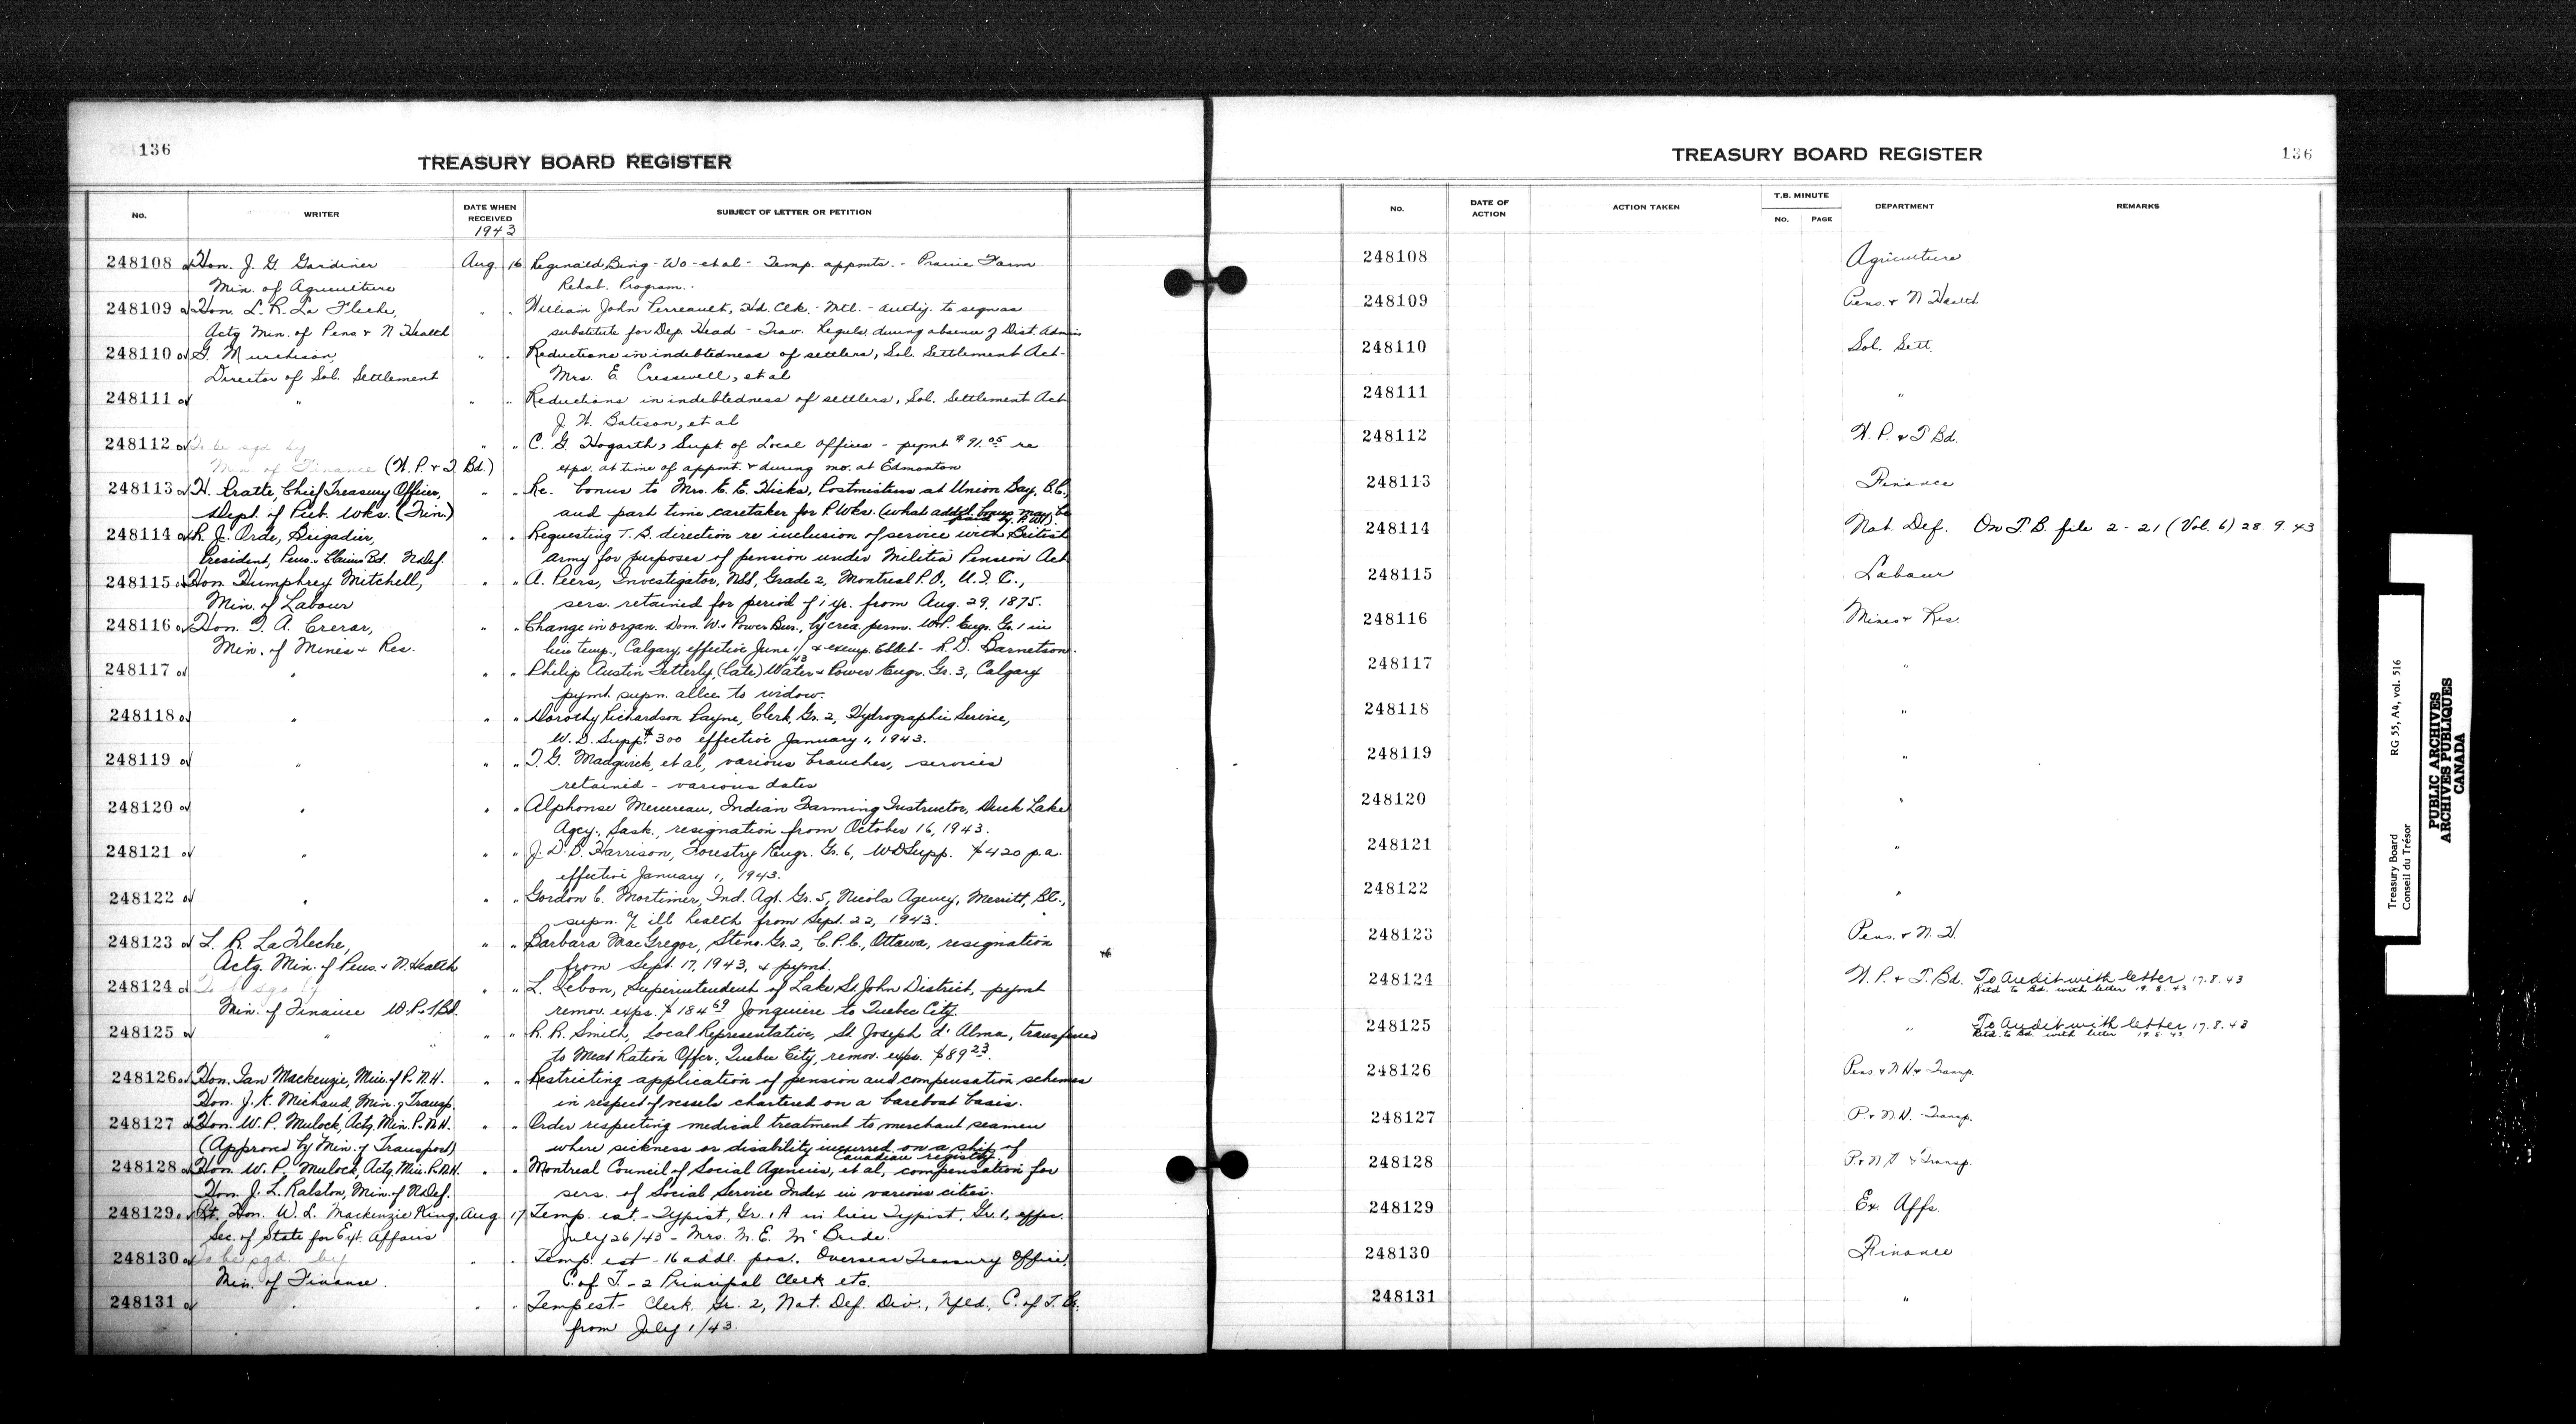 136
TREASURY BOARD REGISTER
No.
WRITER
DATE WHEN RECEIVED
1943
SUBJECT OF LETTER OR PETITION
248108 Hon. J. G. Gardiner Aug. 16 Reginald Bing-Wo - et al - Temp. appmts. - Prairie Farm
Min. of Agriculture Rehab. Program.
248109 Hon. L. R. La Fleche, " " William John Perreault, Hd. Clk. - Mtl. - authy. to sign as
Actg Min. of Pens & N Health substitute for Dep. Head - Trav. Reguls. during absence of Dist. Admin
248110 G. Murchison, " " Reductions in indebtedness of settlers, Sol. Settlement Act -
Director of Sol. Settlement Mrs. E. Cresswell, et al
248111 " " " Reductions in indebtedness of settlers, Sol. Settlement Act
J. H. Bateson, et al
248112 To be sgd by " " C. G. Hogarth, Supt. of Local Offices - pymt $91.05 re
Min. of Finance (W. P. & T. Bd.) exps. at time of appmt. & during mo. at Edmonton
248113 H. Pratte, Chief Treasury Officer, " " Re. bonus to Mrs. E. E. Hicks, Postmistress at Union Bay, B.C.,
Dept. of Pub. Wks. (Fin.) and part time caretaker for P. Wks. (what addtl. bonus may be
paid by P.W.)
248114 R. J. Orde, Brigadier, " " Requesting T. B. direction re inclusion of service with British
President, Pens. Claims Bd. N.Def. Army for purposes of pension under Militia Pension Act
248115 Hon. Humphrey Mitchell, " " A. Peers, Investigator, Grade 2, Montreal P.O., U. I. C.,
Min. of Labour sers. retained for period of 1 yr. from Aug. 29, 1875.
248116 Hon. T. A. Crerar, " " Change in organ. Dom. W. & Power Bur., by crea. perm. W&P. Engr. Gr. 1 in
Min. of Mines & Res. lieu temp., Calgary, effective June 1/43 & exemp.
248117 " " " Philip Austin Fetterly, (late) Water & Power Engr. Gr. 3, Calgary
pymt. supn. allce to widow.
248118 " " " Dorothy Richardson Payne, Clerk, Gr. 2, Hydrographic Service,
W. D. Supp. $300 effective January 1, 1943.
248119 " " " T. G. Madgwick, et al, various branches, services
retained - various dates
248120 " " " Alphonse Mercereau, Indian Farming Instructor, Duck Lake
Agcy., Sask., resignation from October 16, 1943.
248121 " " " J. D. B. Harrison, Forestry Engr. Gr. 6, W D Supp. $420 p.a.
effective January 1, 1943.
248122 " " " Gordon C. Mortimer, Ind. Agt. Gr. 5, Nicola Agency, Merritt, B.C.,
supn. a/c ill health from Sept. 22, 1943.
248123 L. R. LaFleche, " " Barbara MacGregor, Steno. Gr. 2, C. P. C., Ottawa, resignation
Actg. Min. of Pens. & N. Health from Sept. 17, 1943, & pymt.
248124 To be sgd by " " L. Lebon, Superintendent of Lake St. John District, pymt
Min. of Finance W.P.&T.Bd. remov. exps. $184.69 Jonquiere to Quebec City.
248125 " " " R. R. Smith, Local Representative, St. Joseph d' Alma, transferred
to Meat Ration Offcr., Quebec City, remov. exps. $89.23.
248126 Hon. Ian Mackenzie, Min. of P. N. H. " " Restricting application of pension and compensation schemes
Hon. J. E. Michaud, Min. of Transp. in respect of vessels chartered on a bareboat basis.
248127 Hon. W. P. Mulock, Actg. Min. P. N. H. " " Order respecting medical treatment to merchant seamen
(Approved by Min. of Transport) where sickness or disability incurred on a ship of
Canadian registry.
248128 Hon. W. P. Mulock, Actg. Min. P. N. H. " " Montreal Council of Social Agencies, et al, compensation for
Hon. J. L. Ralston, Min. of N. Def. sers. of Social Service Index in various cities.
248129 Rt. Hon. W. L. Mackenzie King, Aug 17 Temp. est. - Typist, Gr. 1 A in lieu Typist, Gr. 1, effec.
Sec. of State for Ext. Affairs July 26/43 - Mrs. M. E. McBride.
248130 To be sgd. by " " Temp. est - 16 addl. pos. Overseas Treasury Office,
Min. of Finance. C. of T. - 2 Principal Clerk etc.
248131 " " " Temp est - Clerk Gr. 2, Nat. Def. Div., Nfld, C. of T. Br.
from July 1/43.
TREASURY BOARD REGISTER
136
No.
DATE OF ACTION
ACTION TAKEN
T.B. MINUTE
No.
PAGE
DEPARTMENT
REMARKS
248108 Agriculture
248109 Pens. & N Health
248110 Sol. Sett.
248111 "
248112 W. P. & T Bd.
248113 Finance
248114 Nat. Def. On T.B. file 2-21 (Vol. 6) 28.9.43
248115 Labour
248116 Mines & Res.
248117 "
248118 "
248119 "
248120 "
248121 "
248122 "
248123 Pens. & N. H.
248124 W. P. & T. Bd. To Audit with letter 17.8.43
Retd to Bd. with letter 19.8.43
248125 " To Audit with letter 17.8.43
Retd. to Bd. with letter 19.8.43
248126 Pens & N H & Transp.
248127 P & N.H. - Transp.
248128 P & N H & Transp.
248129 Ex. Affs.
248130 Finance
248131 "
Treasury Board
Conseil du Trésor
RG 55, A4, vol. 516
PUBLIC ARCHIVES
ARCHIVES PUBLIQUES
CANADA